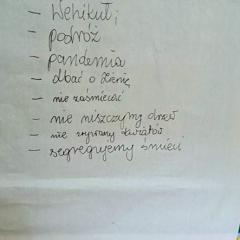 - Wehikuł;
- podróż
- pandemia
- dbać o Ziemię
- nie zaśmiecać
- nie niszczymy drzew
- nie zrywamy kwiatów
- segregujemy śmieci